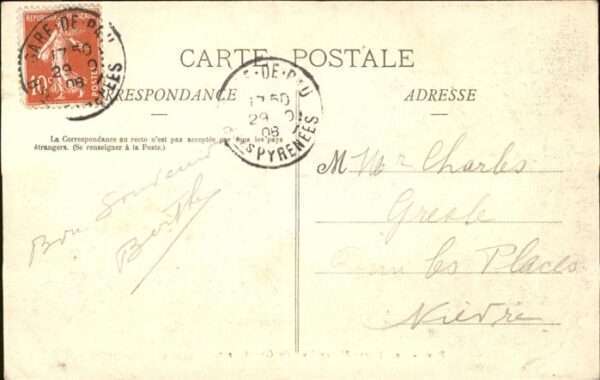 REPUBLIQUE FRANÇAISE
10c
POSTES
GARE-DE-PAU
17 50
29
08
CARTE POSTALE
GARE-DE-PAU
17 50
29
08
PYRENEES
CORRESPONDANCE
ADRESSE
La Correspondance au recto n'est pas acceptée par tous les pays
étrangers. (Se renseigner à la Poste.)
Bon Souvenir
Berthe
M Mr Charles
les Places
Nièvre